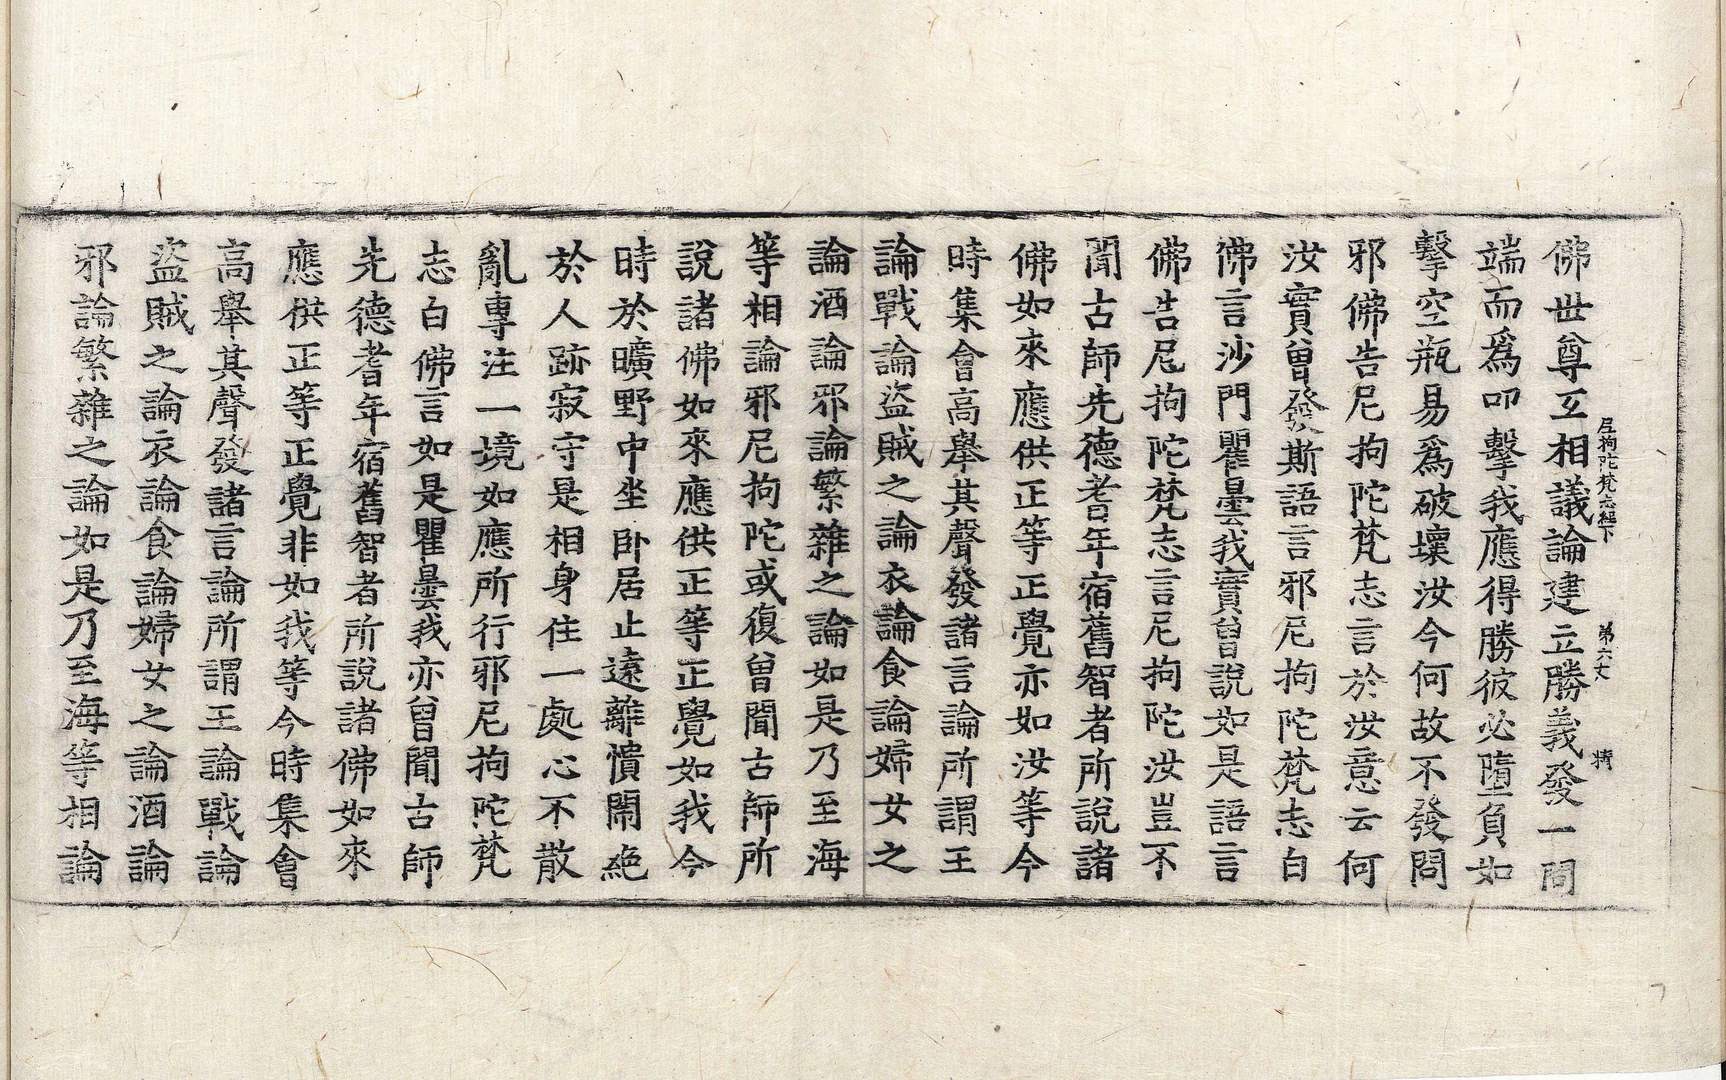 尼拘陀梵志經下 第六丈 精
佛世尊互相議論建立勝義發一問
端而爲叩擊我應得勝彼必墮負如
擊空瓶易爲破壞汝今何故不發問
邪佛告尼拘陀梵志言於汝意云何
汝實曾發斯語言邪尼拘陀梵志白
佛言沙門瞿曇我實曾說如是語言
佛告尼拘陀梵志言尼拘陀汝豈不
聞古師先德耆年宿舊智者所說諸
佛如來應供正等正覺亦如汝等今
時集會高舉其聲發諸言論所謂王
論戰論盜賊之論衣論食論婦女之
論酒論邪論繁雜之論如是乃至海
等相論邪尼拘陀或復曾聞古師所
說諸佛如來應供正等正覺如我今
時於曠野中坐卧居止遠離憒閙絶
於人跡寂守是相身住一處心不散
亂專注一境如應所行邪尼拘陀梵
志白佛言如是瞿曇我亦曾聞古師
先德耆年宿舊智者所說諸佛如來
應供正等正覺非如我等今時集會
高舉其聲發諸言論所謂王論戰論
盜賊之論衣論食論婦女之論酒論
邪論繁雜之論如是乃至海等相論